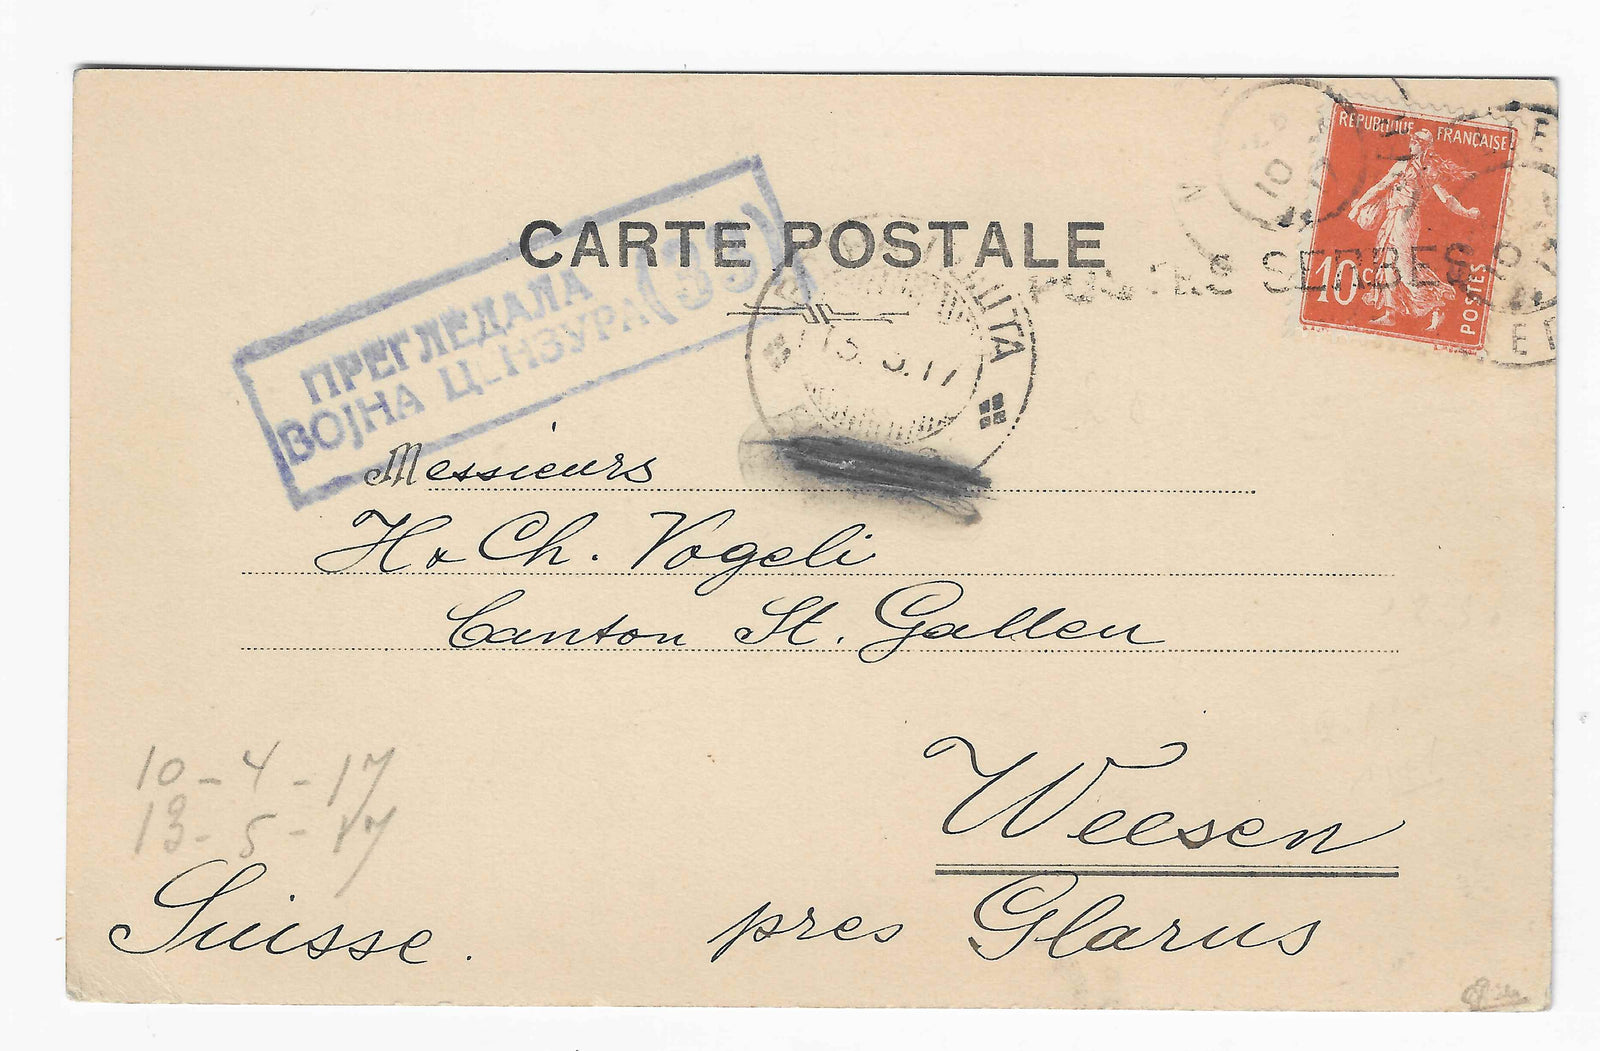 CARTE POSTALE
REPUBLIQUE FRANÇAISE
10 c.
POSTES
POSTES SERBES
10
ПРЕГЛЕДАЛА
ВОЈНА ЦЕНЗУРА (39)
ПОШТА
Messieurs
H & Ch. Vogeli
Canton St. Gallen
Weesen
pres Glarus
Suisse.
10-4-17
13-5-17